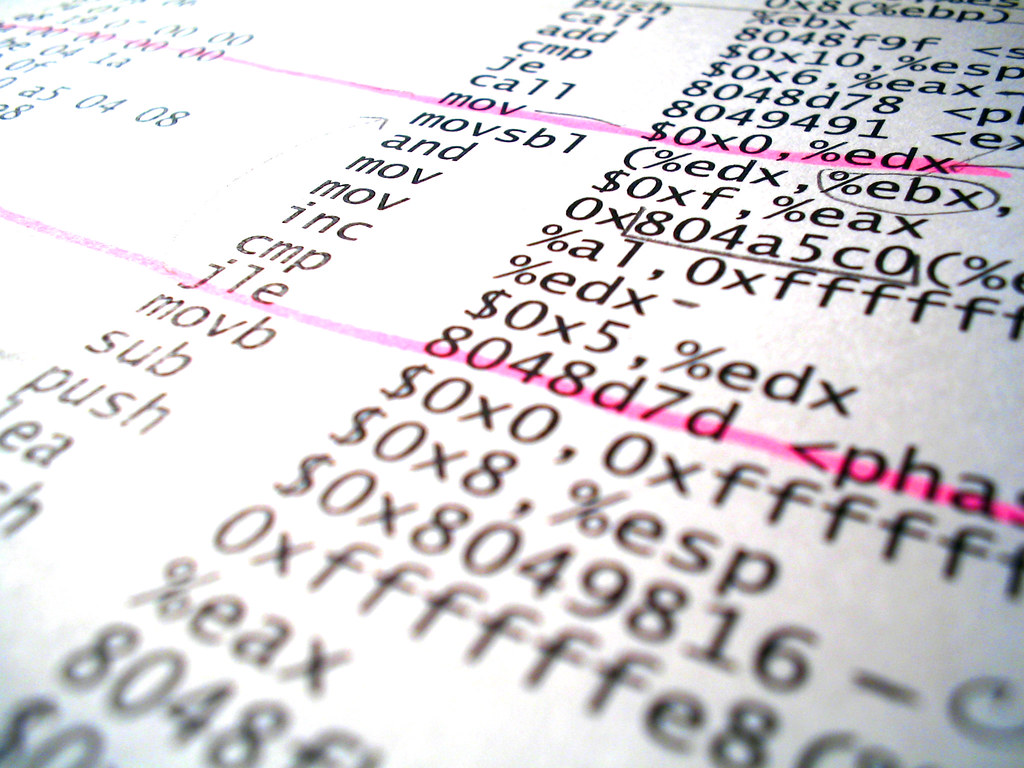 0x8(%ebp)
push %ebx
call 8048f9f <s
add $0x10,%esp
cmp $0x6,%eax
je 8048d78 <ph
00 00 call 8049491 <ex
00 00 00 00 mov $0x0,%edx
be 04 1a movsbl (%edx,%ebx,
0f and $0xf,%eax
a5 04 08 mov 0x804a5c0(%e
e8 mov %al,0xffffff
inc %edx
cmp $0x5,%edx
jle 8048d7d <pha
movb $0x0,0xffffff
sub $0x8,%esp
push $0x8049816
lea 0xffffffe8(
%eax
8048f